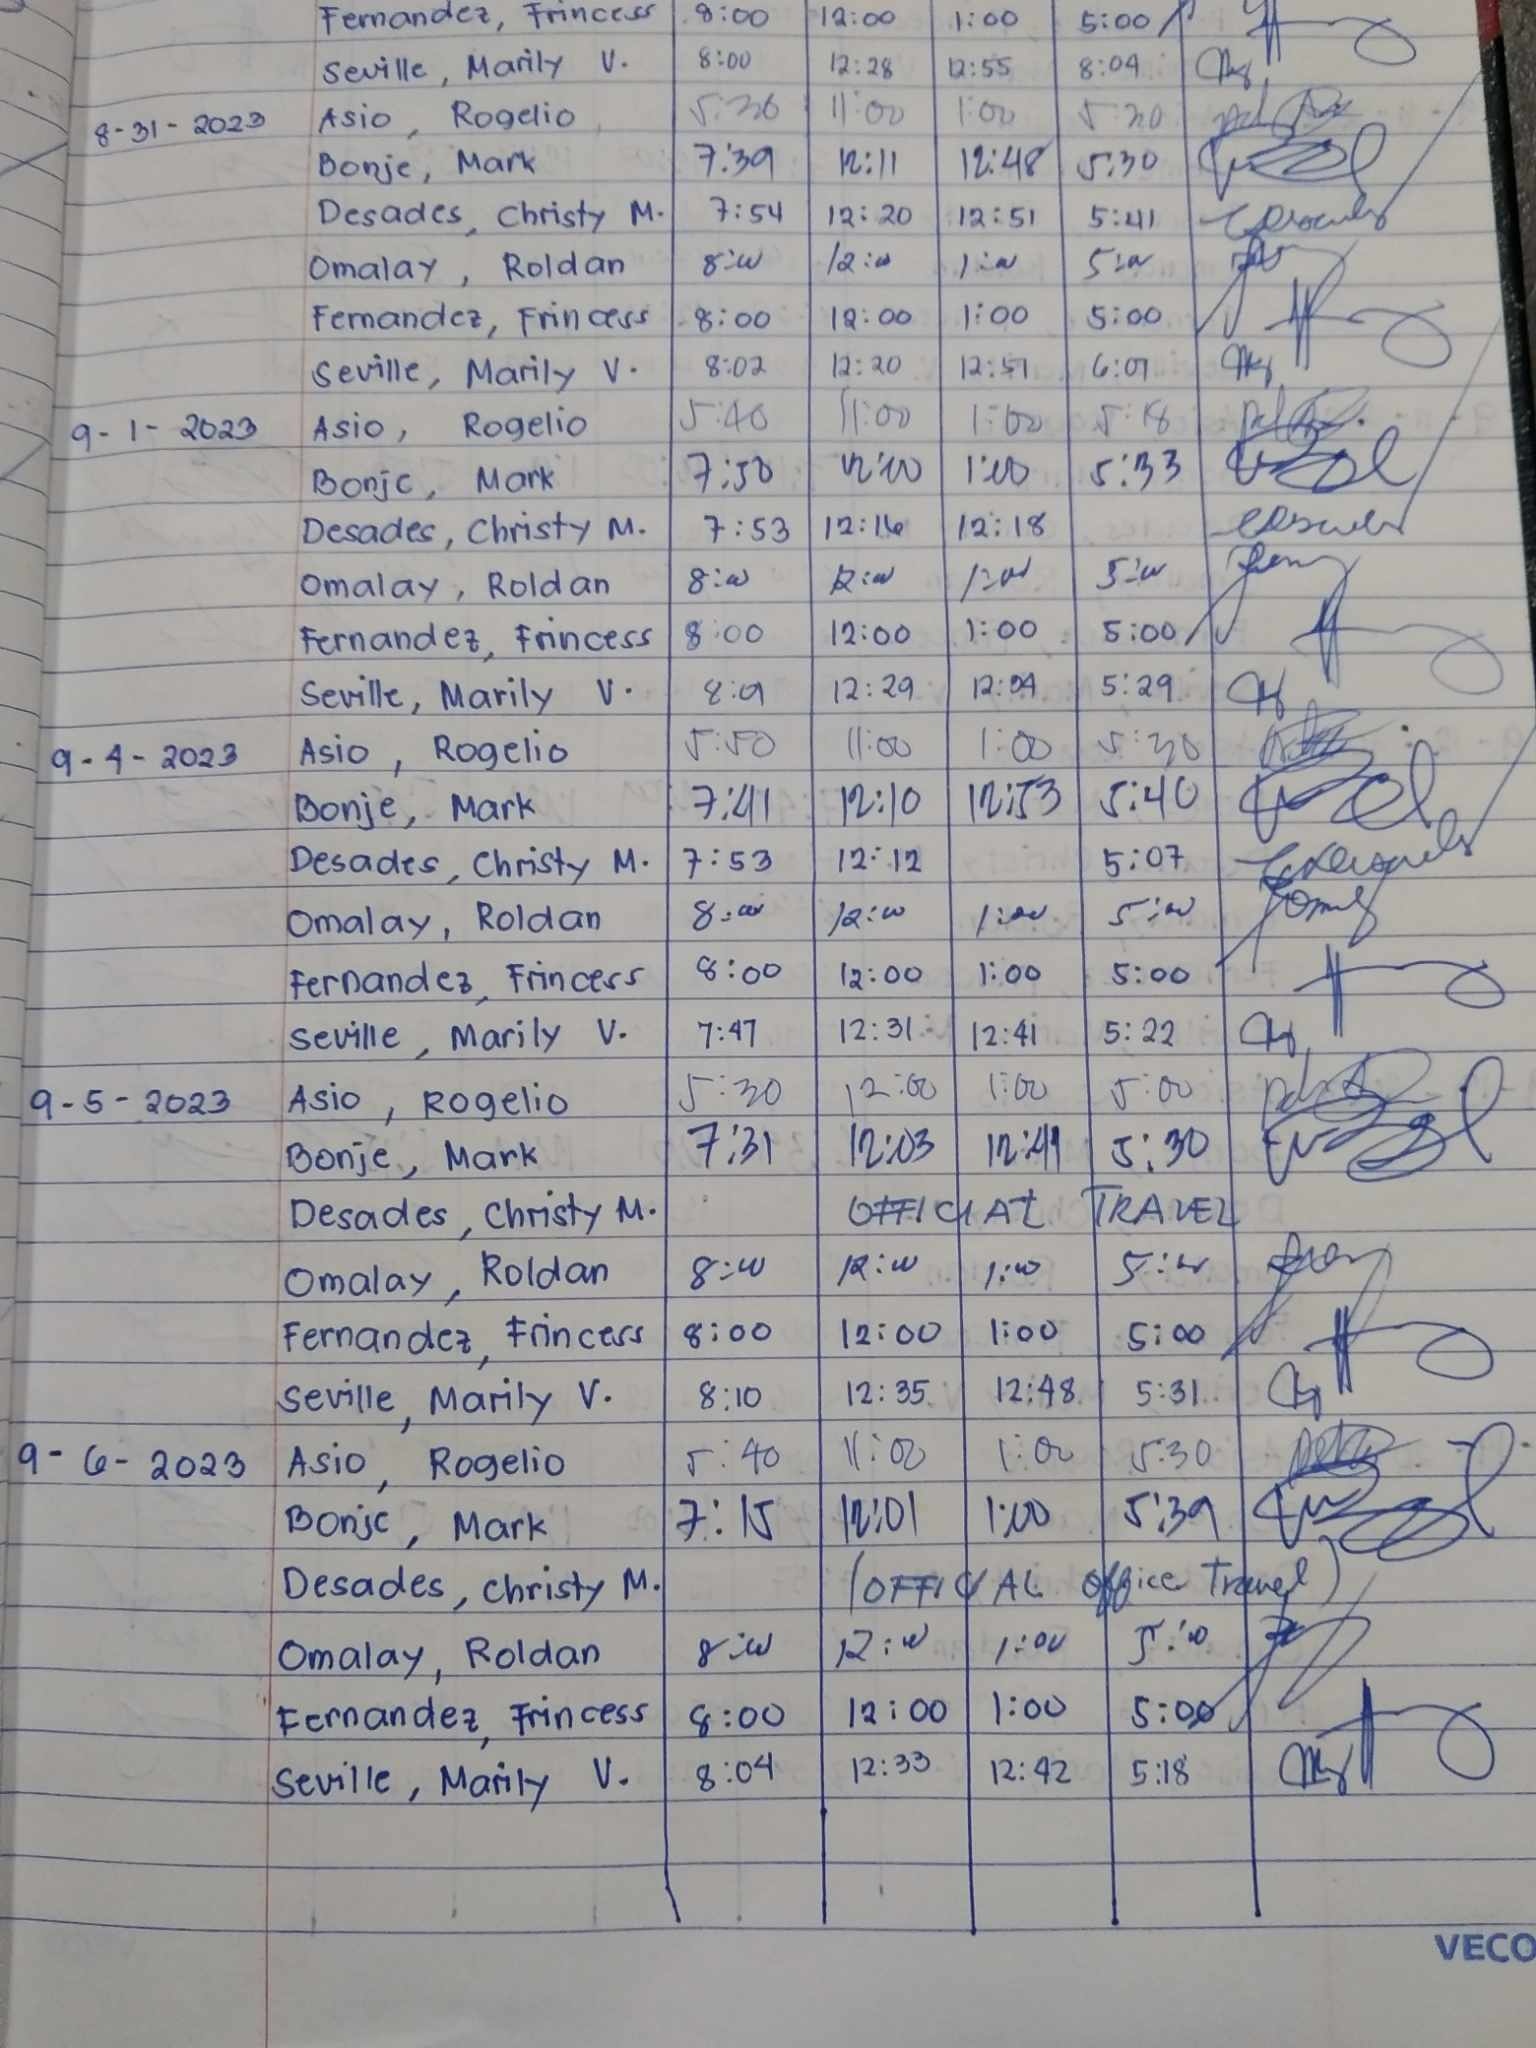 Fernandez, Frincess 8:00 12:00 1:00 5:00
Seville, Marily V. 8:00 12:28 12:55 8:09
8-31-2023 Asio, Rogelio 5:30 11:00 1:00 5:30
Bonje, Mark 7:39 12:11 12:48 5:30
Desades, Christy M. 7:54 12:20 12:51 5:41
Omalay, Roldan 8:00 12:00 1:00 5:00
Fernandez, Frincess 8:00 12:00 1:00 5:00
Seville, Marily V. 8:02 12:20 12:51 6:07
9-1-2023 Asio, Rogelio 5:40 11:00 1:00 5:18
Bonje, Mark 7:50 12:00 1:00 5:33
Desades, Christy M. 7:53 12:16 12:18
Omalay, Roldan 8:00 12:00 1:00 5:00
Fernandez, Frincess 8:00 12:00 1:00 5:00
Seville, Marily V. 12:29 5:29
9-4-2023 Asio, Rogelio 5:50 11:00 1:00 5:30
Bonje, Mark 7:41 12:10 12:53 5:40
Desades, Christy M. 7:53 12:12 5:07
Omalay, Roldan 8:00 12:00 1:00 5:00
Fernandez, Frincess 8:00 12:00 1:00 5:00
Seville, Marily V. 7:47 12:31 12:41 5:22
9-5-2023 Asio, Rogelio 5:30 12:00 1:00 5:00
Bonje, Mark 7:31 12:03 12:49 5:30
Desades, Christy M. OFFICIAL TRAVEL
Omalay, Roldan 8:00 12:00 1:00 5:00
Fernandez, Frincess 8:00 12:00 1:00 5:00
Seville, Marily V. 8:10 12:35 12:48 5:31
9-6-2023 Asio, Rogelio 5:40 11:00 1:00 5:30
Bonje, Mark 7:15 12:01 1:00 5:39
Desades, Christy M. (OFFICIAL Office Travel)
Omalay, Roldan 8:00 12:00 1:00 5:00
Fernandez, Frincess 8:00 12:00 1:00 5:00
Seville, Marily V. 8:04 12:33 12:42 5:18
VECO